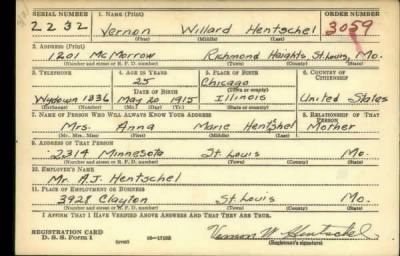 SERIAL NUMBER 1. NAME (Print) ORDER NUMBER
2232 Vernon Willard Hentschel 3059
(First) (Middle) (Last)
2. ADDRESS (Print)
1201 McMorrow Richmond Heights, St. Louis, Mo.
(Number and street or R. F. D. number) (Town) (County) (State)
3. TELEPHONE 4. AGE IN YEARS 5. PLACE OF BIRTH 6. COUNTRY OF CITIZENSHIP
25 Chicago
DATE OF BIRTH (Town or county)
Wydown 1336 May 20 1915 Illinois United States
(Exchange) (Number) (Mo.) (Day) (Yr.) (State or country)
7. NAME OF PERSON WHO WILL ALWAYS KNOW YOUR ADDRESS 8. RELATIONSHIP OF THAT PERSON
Mrs. Anna Marie Hentschel Mother
(Mr., Mrs., Miss) (First) (Middle) (Last)
9. ADDRESS OF THAT PERSON
2314 Minnesota St. Louis Mo.
(Number and street or R. F. D. number) (Town) (County) (State)
10. EMPLOYER'S NAME
Mr. A.J. Hentschel
11. PLACE OF EMPLOYMENT OR BUSINESS
3928 Clayton St. Louis Mo.
(Number and street or R. F. D. number) (Town) (County) (State)
I AFFIRM THAT I HAVE VERIFIED ABOVE ANSWERS AND THAT THEY ARE TRUE.
REGISTRATION CARD
D. S. S. Form 1 (over) 16—17105 Vernon W Hentschel
(Registrant's signature)